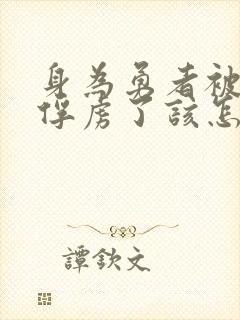 身為勇者被
俘虜了該怎
譚欽文